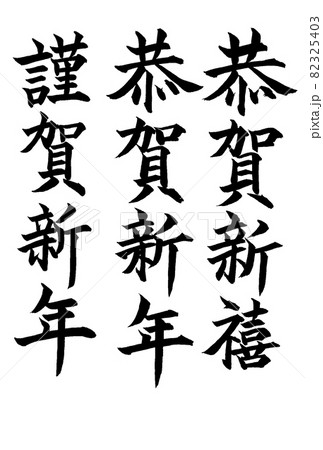 恭賀新禧
恭賀新年
謹賀新年
pixta.jp - 82325403